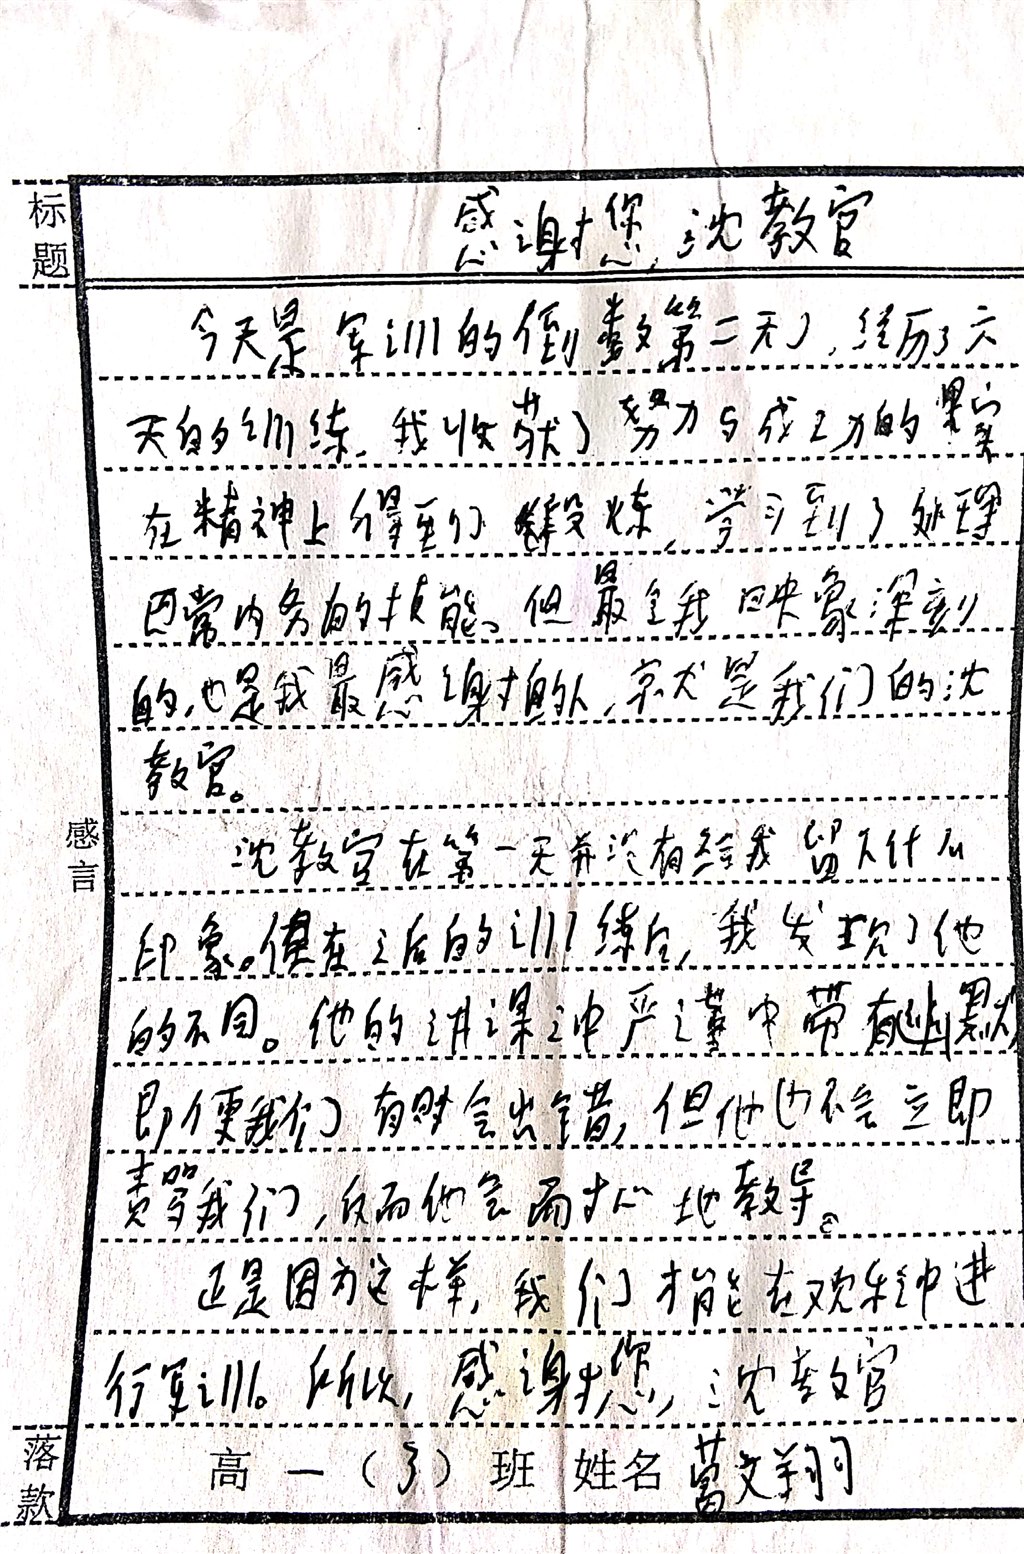 标题
感谢您,沈教官
今天是军训的倒数第二天了,经历了六
天的训练,我收获了努力与成功的果实
在精神上得到了锻炼,学习到了处理
日常内务的技能。但最令我映象深刻
的,也是我最感谢的人,就是我们的沈
教官。
感言
沈教官在第一天并没有给我留下什么
印象。但在之后的训练后,我发现了他
的不同。他的讲课之中严谨中带有幽默
即便我们有时会出错,但他也不会立即
责骂我们,反而他会耐心地教导。
正是因为这样,我们才能在欢乐中进
行军训。所以,感谢您,沈教官
落款
高一(3)班 姓名 葛文翔